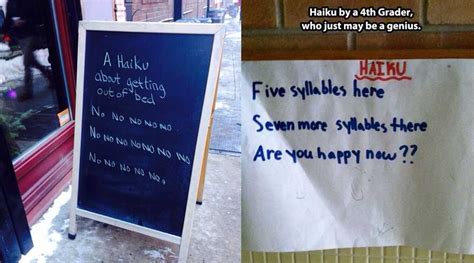 A Haiku
about getting
out of bed
No No No No No...
No No No No No No No
No No No No No.
Haiku by a 4th Grader,
who just may be a genius.
HAIKU
Five syllables here
Seven more syllables there
Are you happy now??